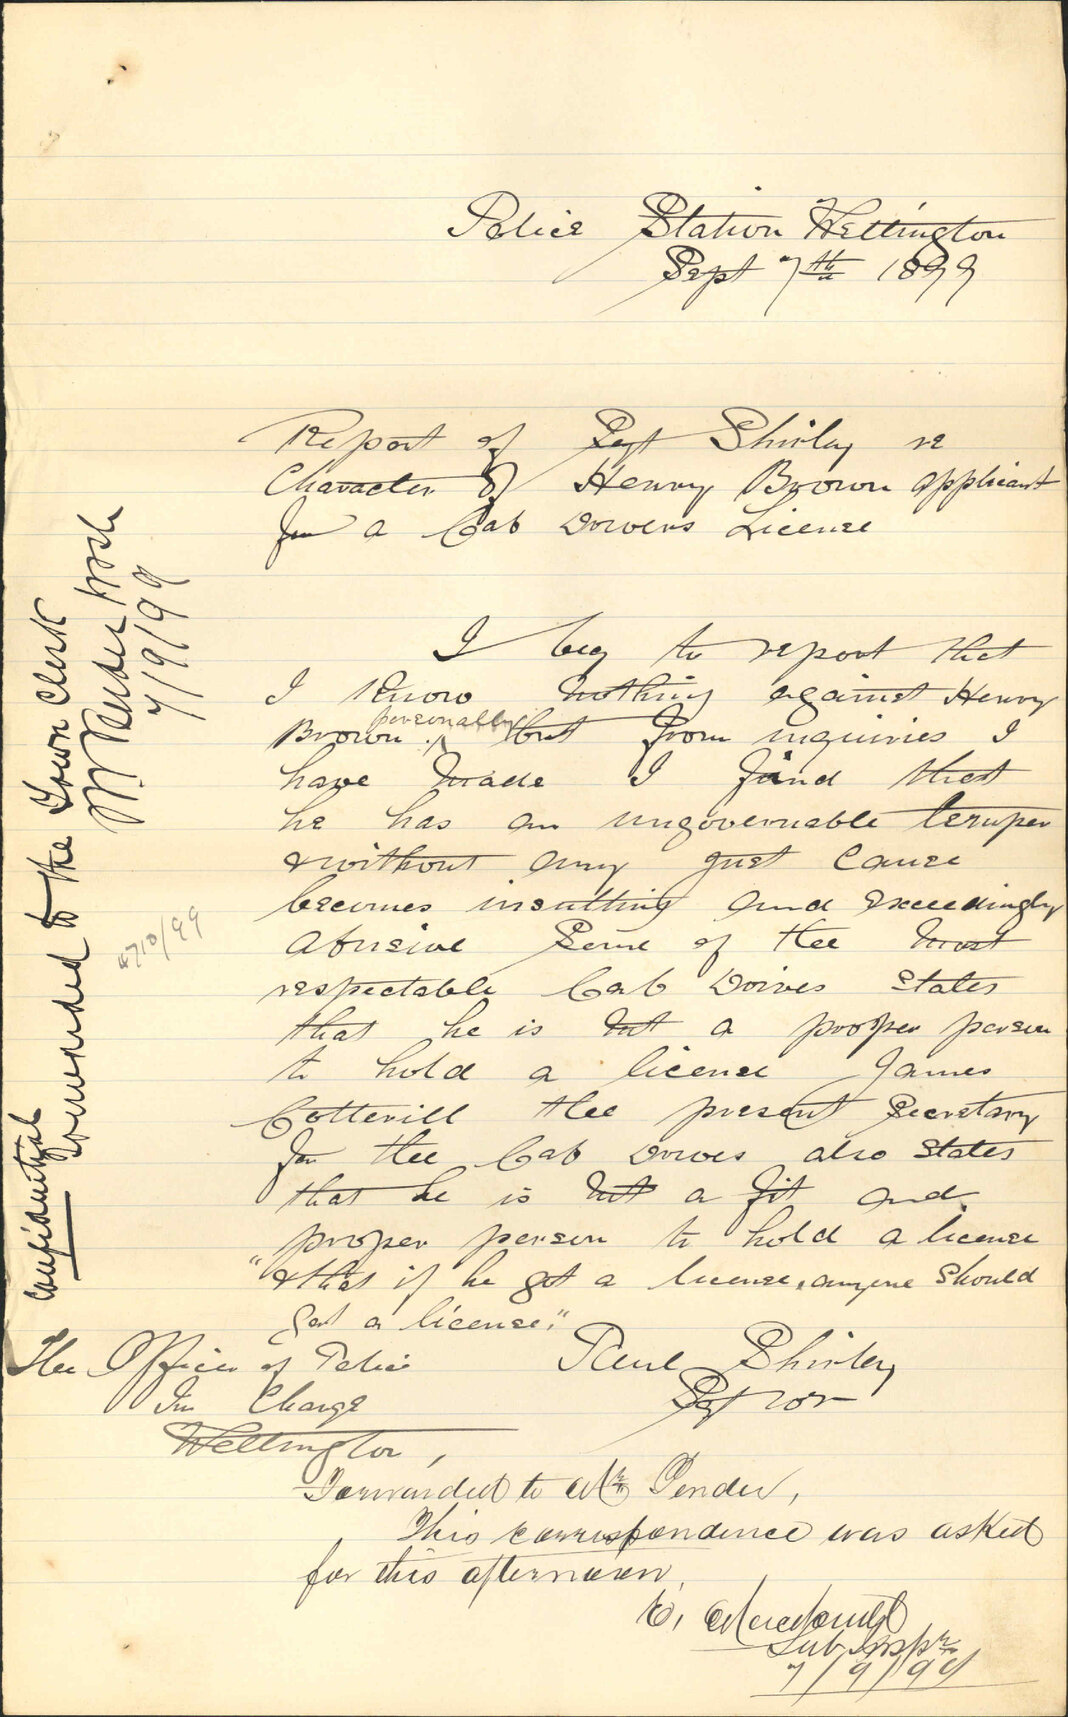 Police Station Wellington
Sept 7th 1899
Report of Segt Shirley re
Character of Henry Brown applicant
for a Cab Drivers License
I beg to report that
I know nothing against Henry
personally
Brown. but from inquiries I
have made I find that
he has an ungovernable temper
& without any just cause
becomes insulting and exceedingly
abusive Some of the most
respectable Cab Drives states
that he is not a proper person
to hold a license James
Cotterill the present Secretary
for the Cab Drives also states
that he is not a fit and
proper person to hold a license
"& that if he got a license, anyone should
get a license."
The Officer of Police
In Charge
Wellington,
Paul Shirley
Segt
Forwarded to Mr Pender,
This correspondence was asked
for this afternoon.
E. Macdonell
Sub Inspr
7/9/99
Confidential
Forwarded to the Town Clerk
Pender Insp
7/9/99